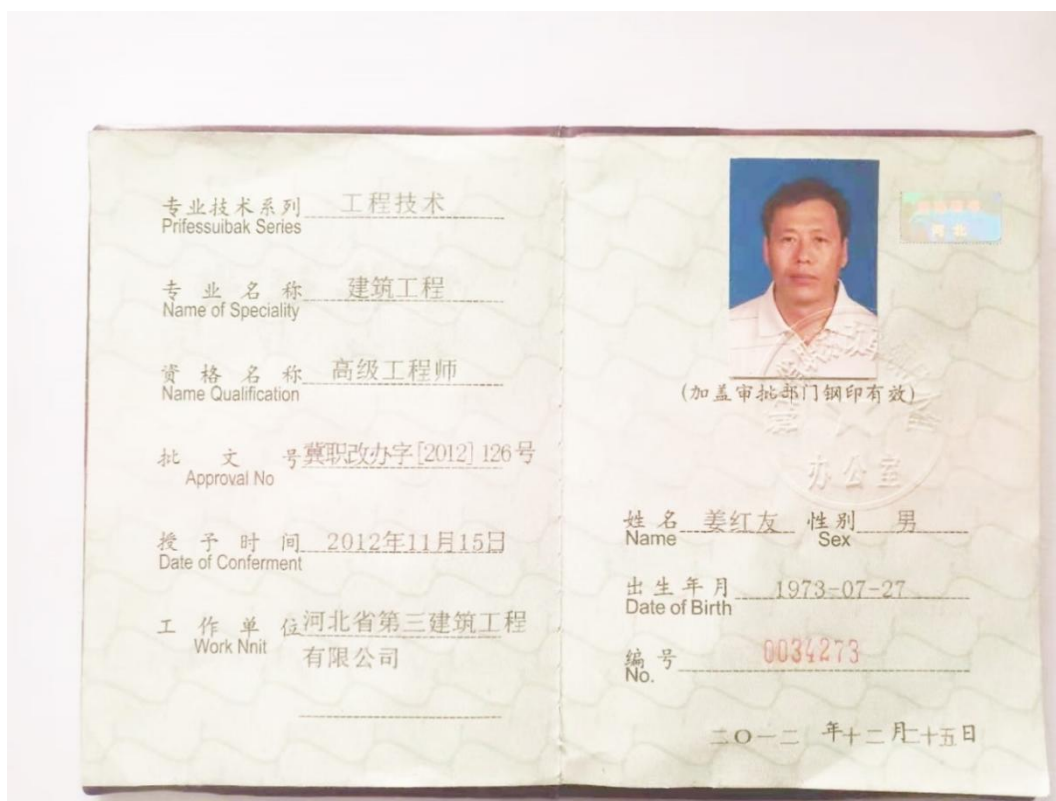 专业技术系列 工程技术
Prifessuibak Series
专业名称 建筑工程
Name of Speciality
资格名称 高级工程师
Name Qualification
批文号 冀职改办字[2012]126号
Approval No
授予时间 2012年11月15日
Date of Conferment
工作单位 河北省第三建筑工程
Work Nnit
有限公司
河北
(加盖审批部门钢印有效)
办公室
姓名 姜红友 性别 男
Name Sex
出生年月 1973-07-27
Date of Birth
编号 0034273
No.
二〇一二 年十二月二十五日